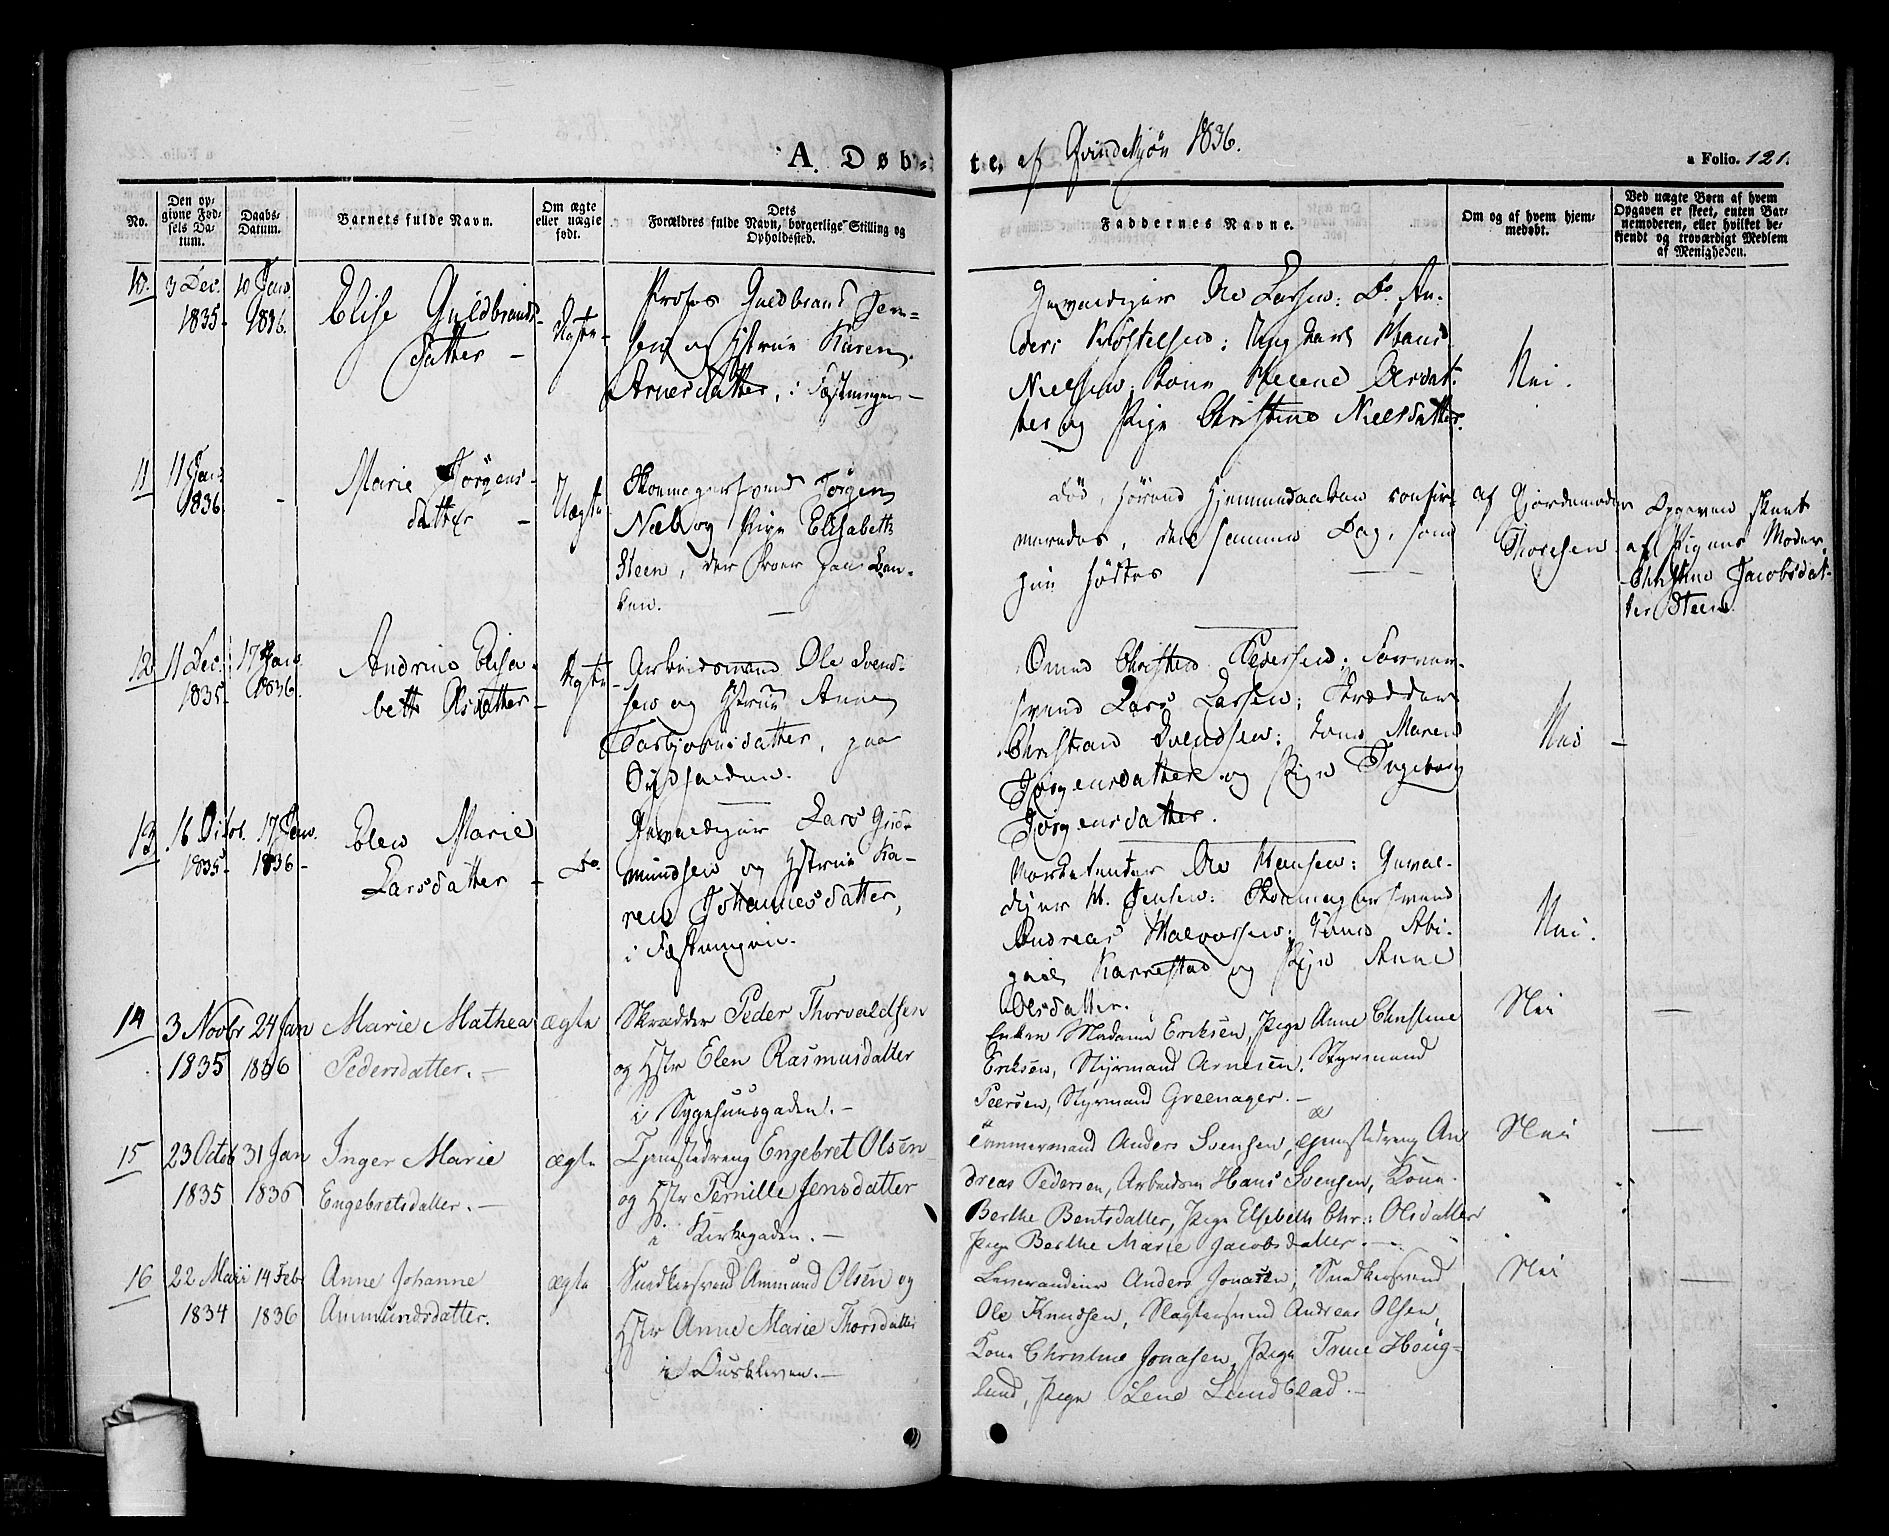 A. Døb=
te, af Qvindekjøn 1836.
a Folio. 121.
No.
Den opgivne Fødsels Datum.
Daabs-Datum.
Barnets fulde Navn.
Om ægte eller uægte født.
Dets Forældres fulde Navn, borgerlige Stilling og Opholdssted.
Faddernes Navne.
Om og af hvem hjemmedøbt.
Ved uægte Børn af hvem Opgaven er skeet, enten Barnemoderen, eller hvilket bekjendt og troværdigt Medlem af Menigheden.
10. 3 Dec. 1835. 10 Janv. 1836.
Elise Guldbrands-
datter –
Ægte –
Profos Guldbrand Jen-
sen og Hstrue Karen
Arnesdatter, i Fæstningen –
Gevaldiger Ole Larsen: Do An-
ders
Nielsen, Kone Helene Olsdat-
ter og Pige Christine Nielsdatter.
Nei.
11 11 Jan: 1836. –
Marie Jørgens-
datter –
Uægte
Skomagersvend Jørgen
Næb og Pige Elisabeth
Steen,
Død, førend Hjemmedaaben confir-
meredes, den samme Dag, som
hun fødtes
af Gjordemoder
Thoresen
Opgaven skeet
af Pigens Moder,
Christine Jacobsdat-
ter Steen.
12 11 Dec. 1835. 17 Janv. 1836.
Andrine Elisa-
beth Olsdatter –
Ægte –
Arbeidsmand Ole Svend-
sen og Hstrue Anne
Torbjørnsdatter, paa
Christen Pedersen;
svend Lars Larsen; Skrædder
Christian Svendsen; Kone Maren
Jørgensdatter og Pige Ingeborg
Jørgensdatter.
Nei –
13 16 Octbr. 1835. 17 Janv. 1836.
Elen Marie
Larsdatter –
Do.
Gevaldiger Lars Gud-
mundsen og Hstrue Ka-
ren Johannesdatter,
i Fæstningen.
Marketenter Ole Hansen: Geval-
diger H. Jensen: Skomagersvend
Andreas Halvorsen; Kone Abi-
gael Karrestad og Pige Anne
Olsdatter.
Nei.
14 3 Novbr 1835 24 Jan 1836
Marie Mathea
Pedersdatter. –
ægte
Skrædder Peder Thorvaldsen
og Hstr Elen Rasmusdatter
i Sygehuusgaden. –
Enken Madame Eriksen, Pige Anne Christine
Eriksen, Styrmand Arnesen. Styrmand
Peersen, Styrmand Greenager. –
Nei
15 23 Octob 1835 31 Jan 1836
Inger Marie
Engebretsdatter. –
ægte
Tjenestedreng Engebret Olsen
og Hstr Pernille Jensdatter
i Kirkegaden. –
Tømmermand Anders Svensen, Tjenestedreng An
dreas Pedersen, Arbeidsm Hans Svensen, Kone
Berthe Bentsdatter, Pige Elsebeth Chr: Olsdatter
Pige Berthe Marie Jacobsdatter. –
Nei
16 22 Maii 1834 14 Feb 1836
Anne Johanne
Ammundsdatter.
ægte
Snedkersvend Ammund Olsen og
Hstr Anne Marie Thorsdatter
i Ouskleven. –
Anders Jonasen, Snedkersvend
Ole Knudsen, Slagtersvend Andreas Olsen,
Kone Christine Jonasen, Pige Trine Houg-
lund, Pige Lene Lundblad. –
Nei